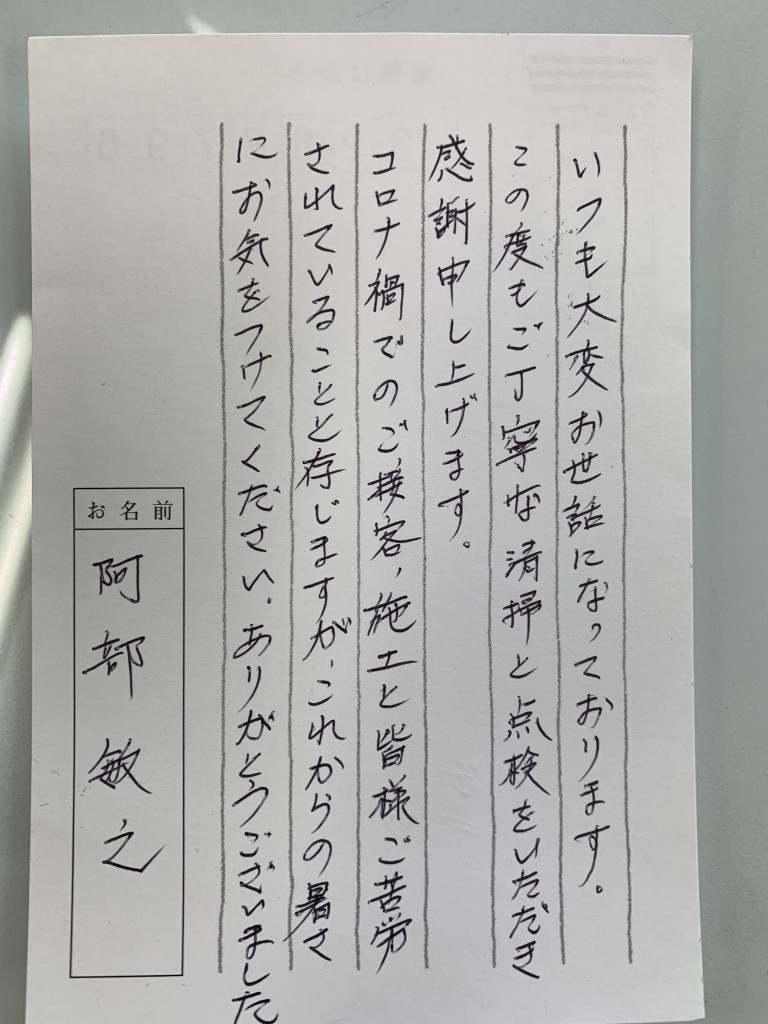 いつも大変お世話になっております。
この度もご丁寧な清掃と点検をいただき
感謝申し上げます。
コロナ禍でのご接客、施工と皆様ご苦労
されていることと存じますが、これからの暑さ
にお気をつけてください。ありがとうございました
お名前
阿部敏之